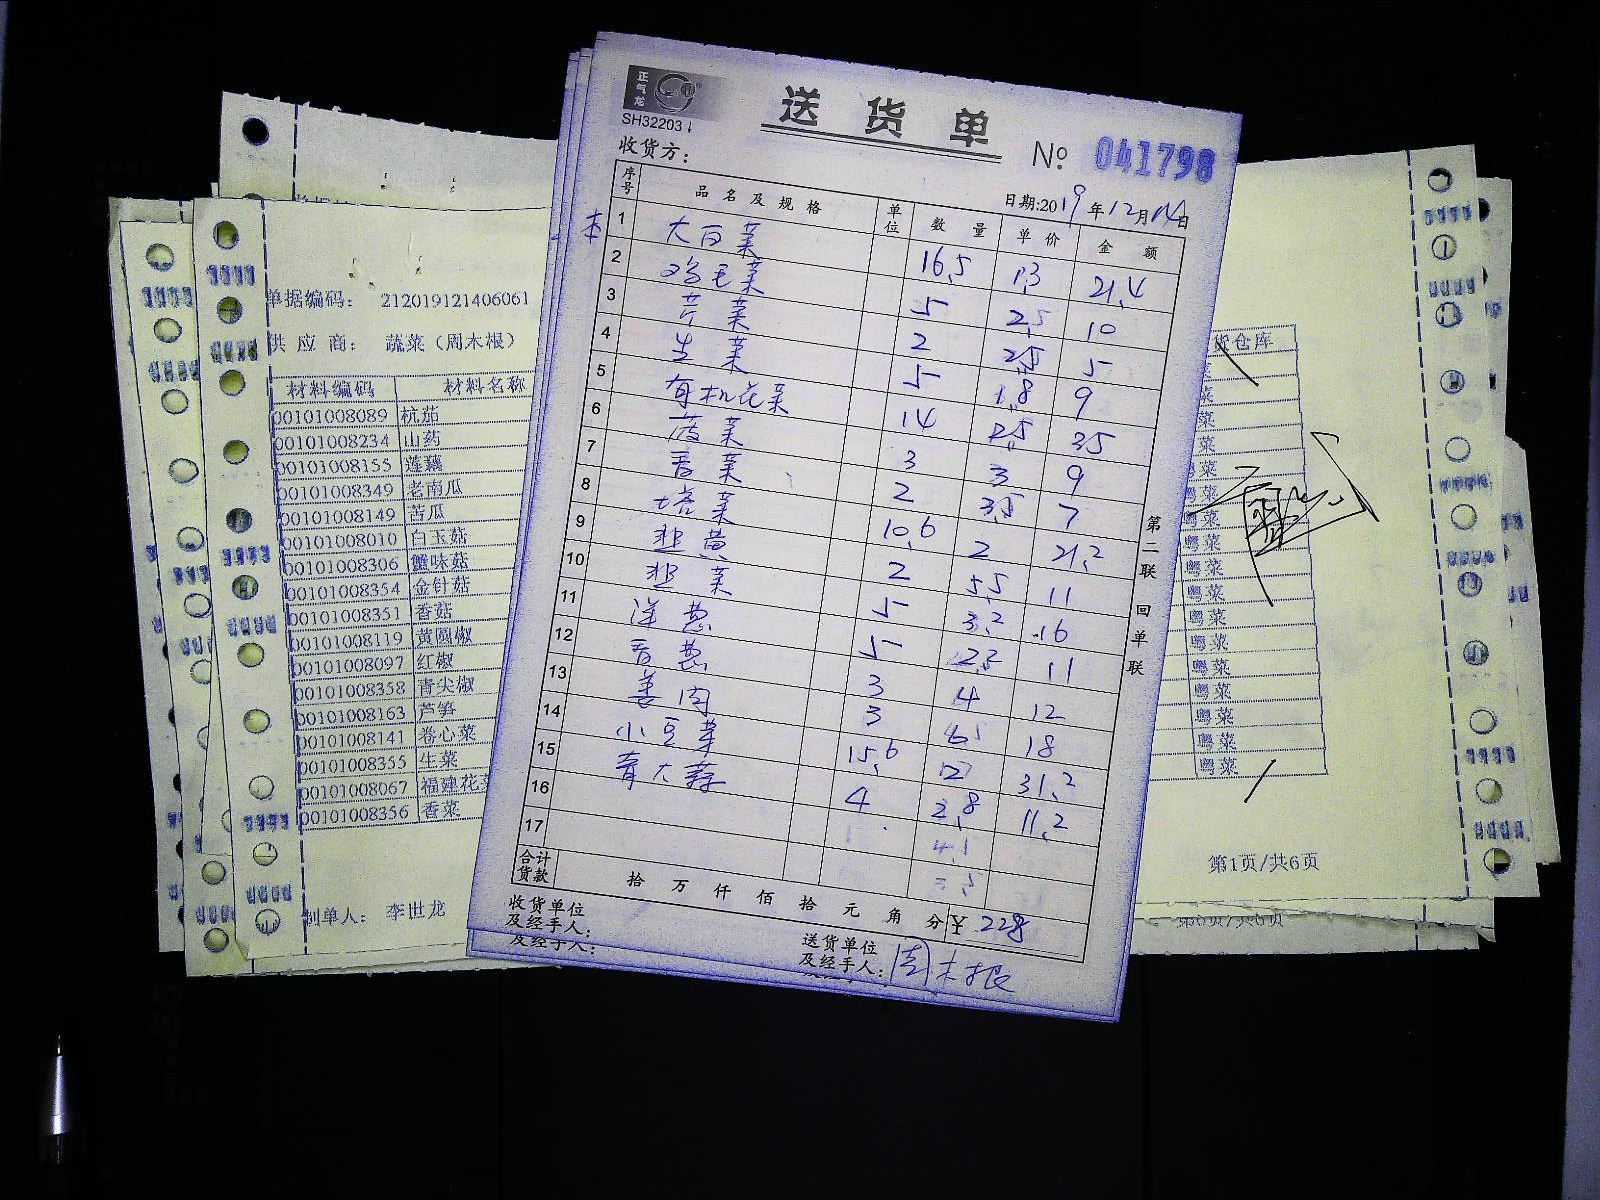 正气龙
SH32203
送货单
收货方：
№ 041798
日期：2019年12月14日
序号 品名及规格 单位 数量 单价 金额
本
1 大白菜 16.5 1.3 21.4
2 鸡毛菜 5 10
3 芹菜 2 2.5 5
4 生菜 5 1.8 9
5 有机花菜 14 2.5 35
6 菠菜 3 3 9
7 香菜 2 3.5 7
8 塔菜 10.6 2 21.2
9 韭黄 2 5.5 11
10 韭菜 5 3.2 16
11 洋葱 5 11
12 香葱 3 4 12
13 3 18
14 小豆芽 15.6 2 31.2
15 青大蒜 4 2.8 11.2
16
17
合计货款 拾 万 仟 佰 拾 元 角 分 ￥ 228
收货单位及经手人：
送货单位及经手人：周木根
及经手人：
第二联 回单联
单据编码： 212019121406061
供应商： 蔬菜（周木根）
材料编码 材料名称
00101008089 杭茄
00101008234 山药
00101008155 莲藕
00101008349 老南瓜
00101008149 苦瓜
00101008010 白玉菇
00101008306 蟹味菇
00101008354 金针菇
00101008351 香菇
00101008119 黄圆椒
00101008097 红椒
00101008358 青尖椒
00101008163 芦笋
00101008141 卷心菜
00101008355 生菜
00101008067 福建花菜
00101008356 香菜
制单人： 李世龙
货仓库
菜
菜
菜
菜
粤菜
粤菜
粤菜
粤菜
粤菜
粤菜
粤菜
粤菜
粤菜
粤菜
粤菜
粤菜
粤菜
第1页/共6页